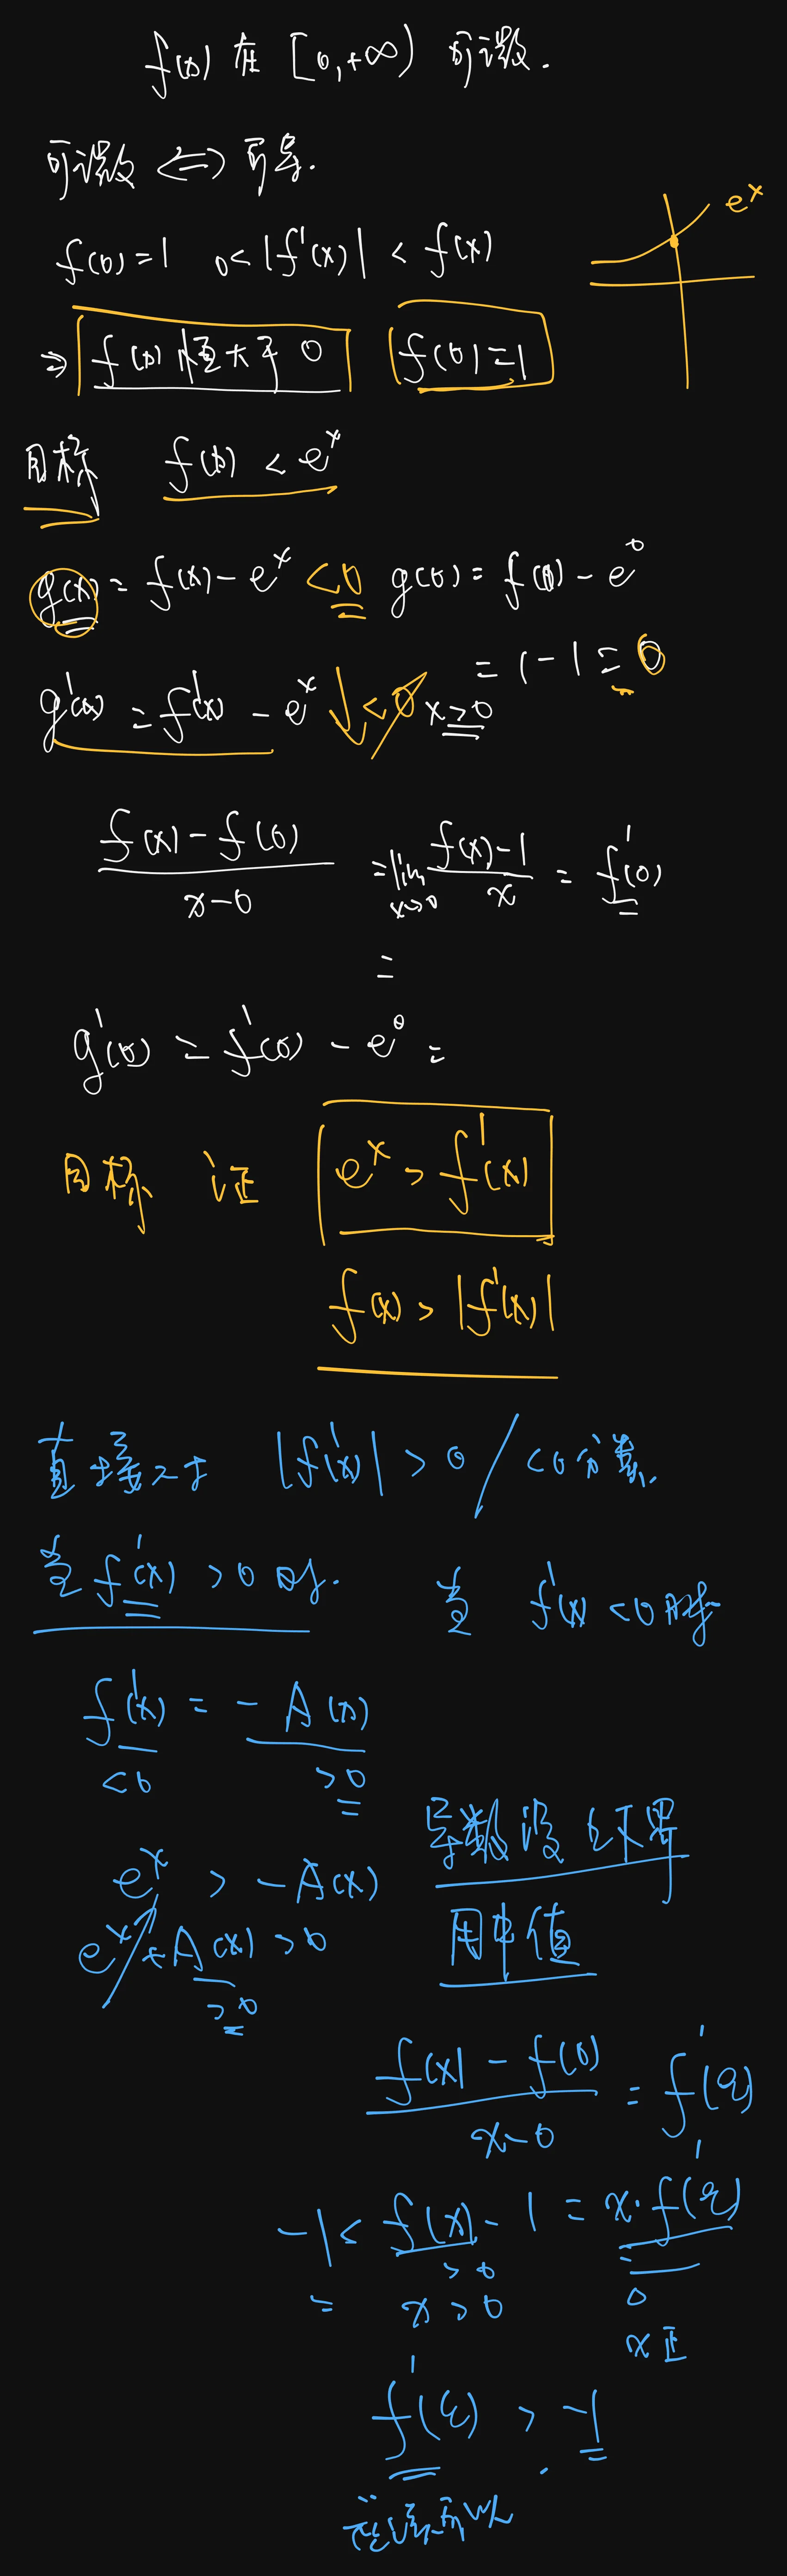 f(x) 在 [0,+∞) 可微.
可微 <=> 可导.
e^x
f(0)=1 0<|f'(x)| < f(x)
=> f(x) 恒大于 0 f(0)=1
目标 f(x) < e^x
g(x) = f(x) - e^x <0 g(0) = f(0) - e^0
= 1-1 = 0
g'(x) = f'(x) - e^x ↓ <0 x≥0
\frac{f(x)-f(0)}{x-0} = \lim_{x→0} \frac{f(x)-1}{x} = f'(0)
=
g'(0) = f'(0) - e^0 =
目标 证 e^x > f'(x)
f(x) > |f'(x)|
直接对 |f'(x)| > 0 / <0 分类.
当 f'(x) > 0 时. 当 f'(x) < 0 时
f'(x) = - A(x)
<0 >0
e^x > -A(x) 导数没
e^x + A(x) > 0 用中值
>0
\frac{f(x)-f(0)}{x-0} = f'(ξ)
-1 < f(x) - 1 = x·f'(ξ)
>0
= x > 0 0
x正
f'(ξ) > -1